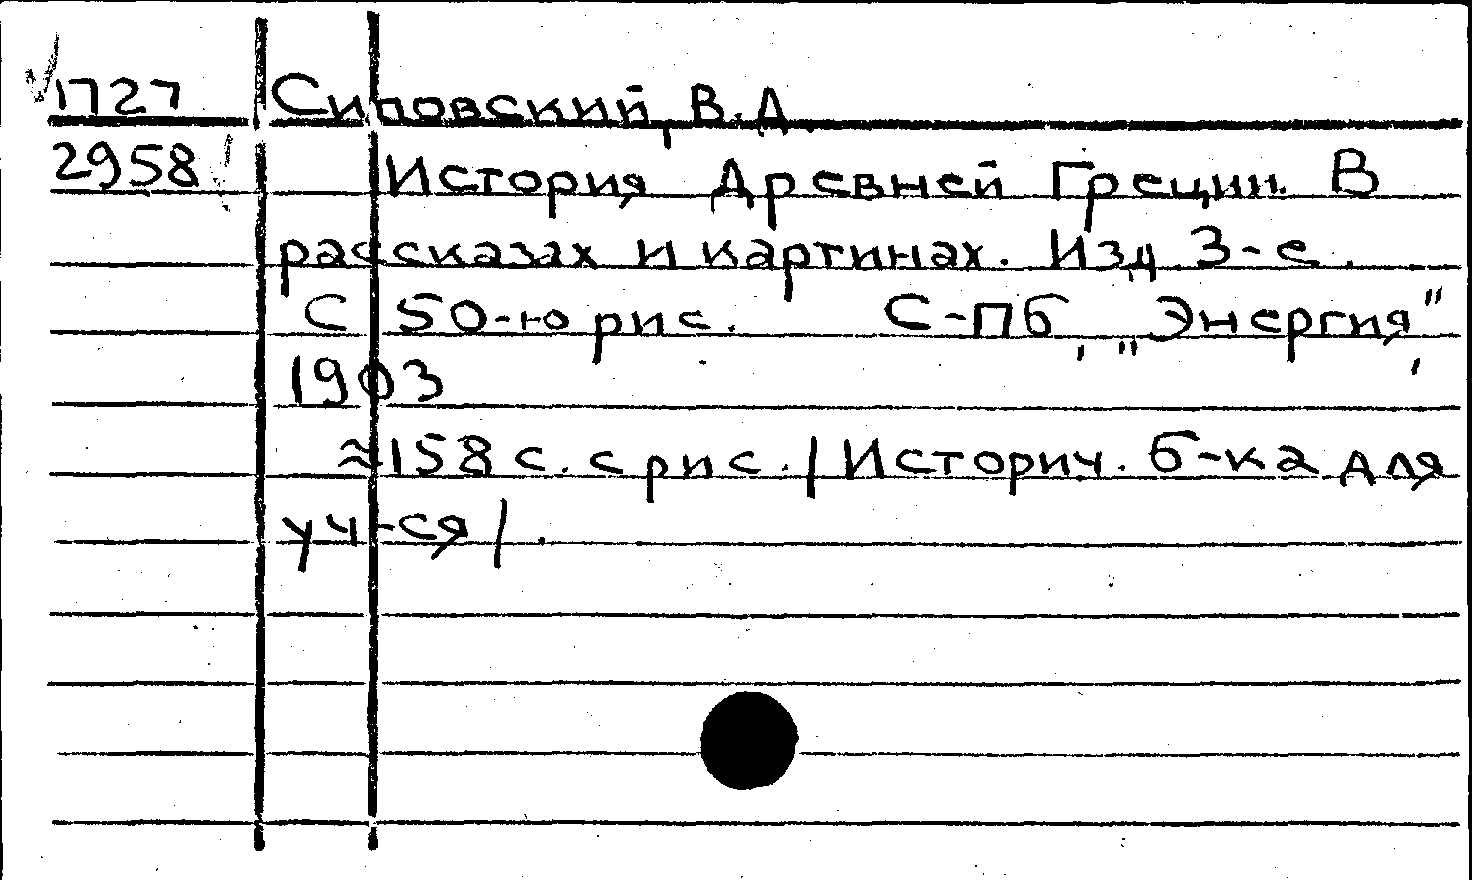 1727 Сиповский, В.Д
2958 История Древней Греции. В
рассказах и картинах. Изд 3-е.
С 50-ю рис. С-Пб, "Энергия",
1903
≈158 с. с рис. /Историч. б-ка для
уч-ся/.